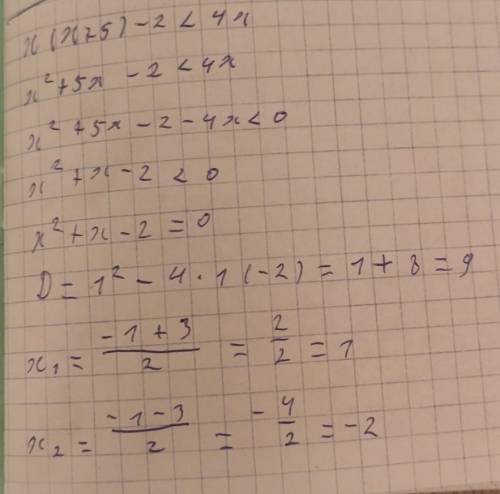 x(x+5)-2<4x
x²+5x-2<4x
x²+5x-2-4x<0
x²+x-2<0
x²+x-2=0
D=1²-4·1(-2)=1+8=9
x₁=(-1+3)/2=2/2=1
x₂=(-1-3)/2=-4/2=-2